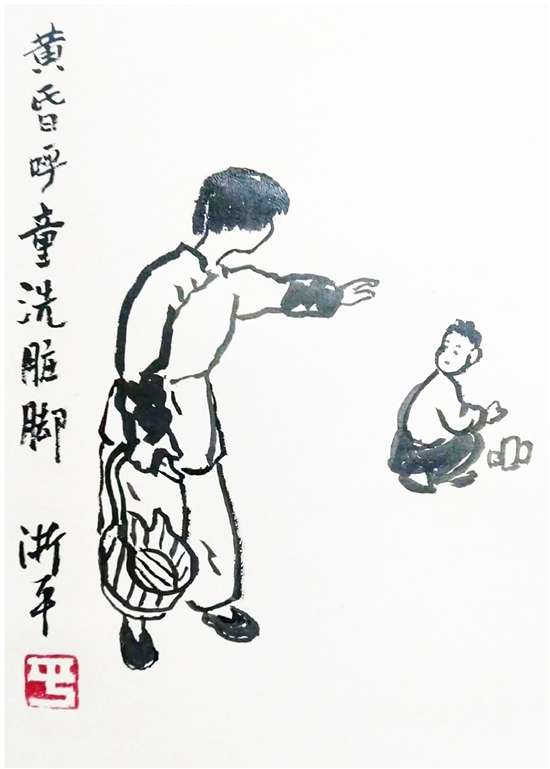 黄昏呼童洗脏脚
浙平
平